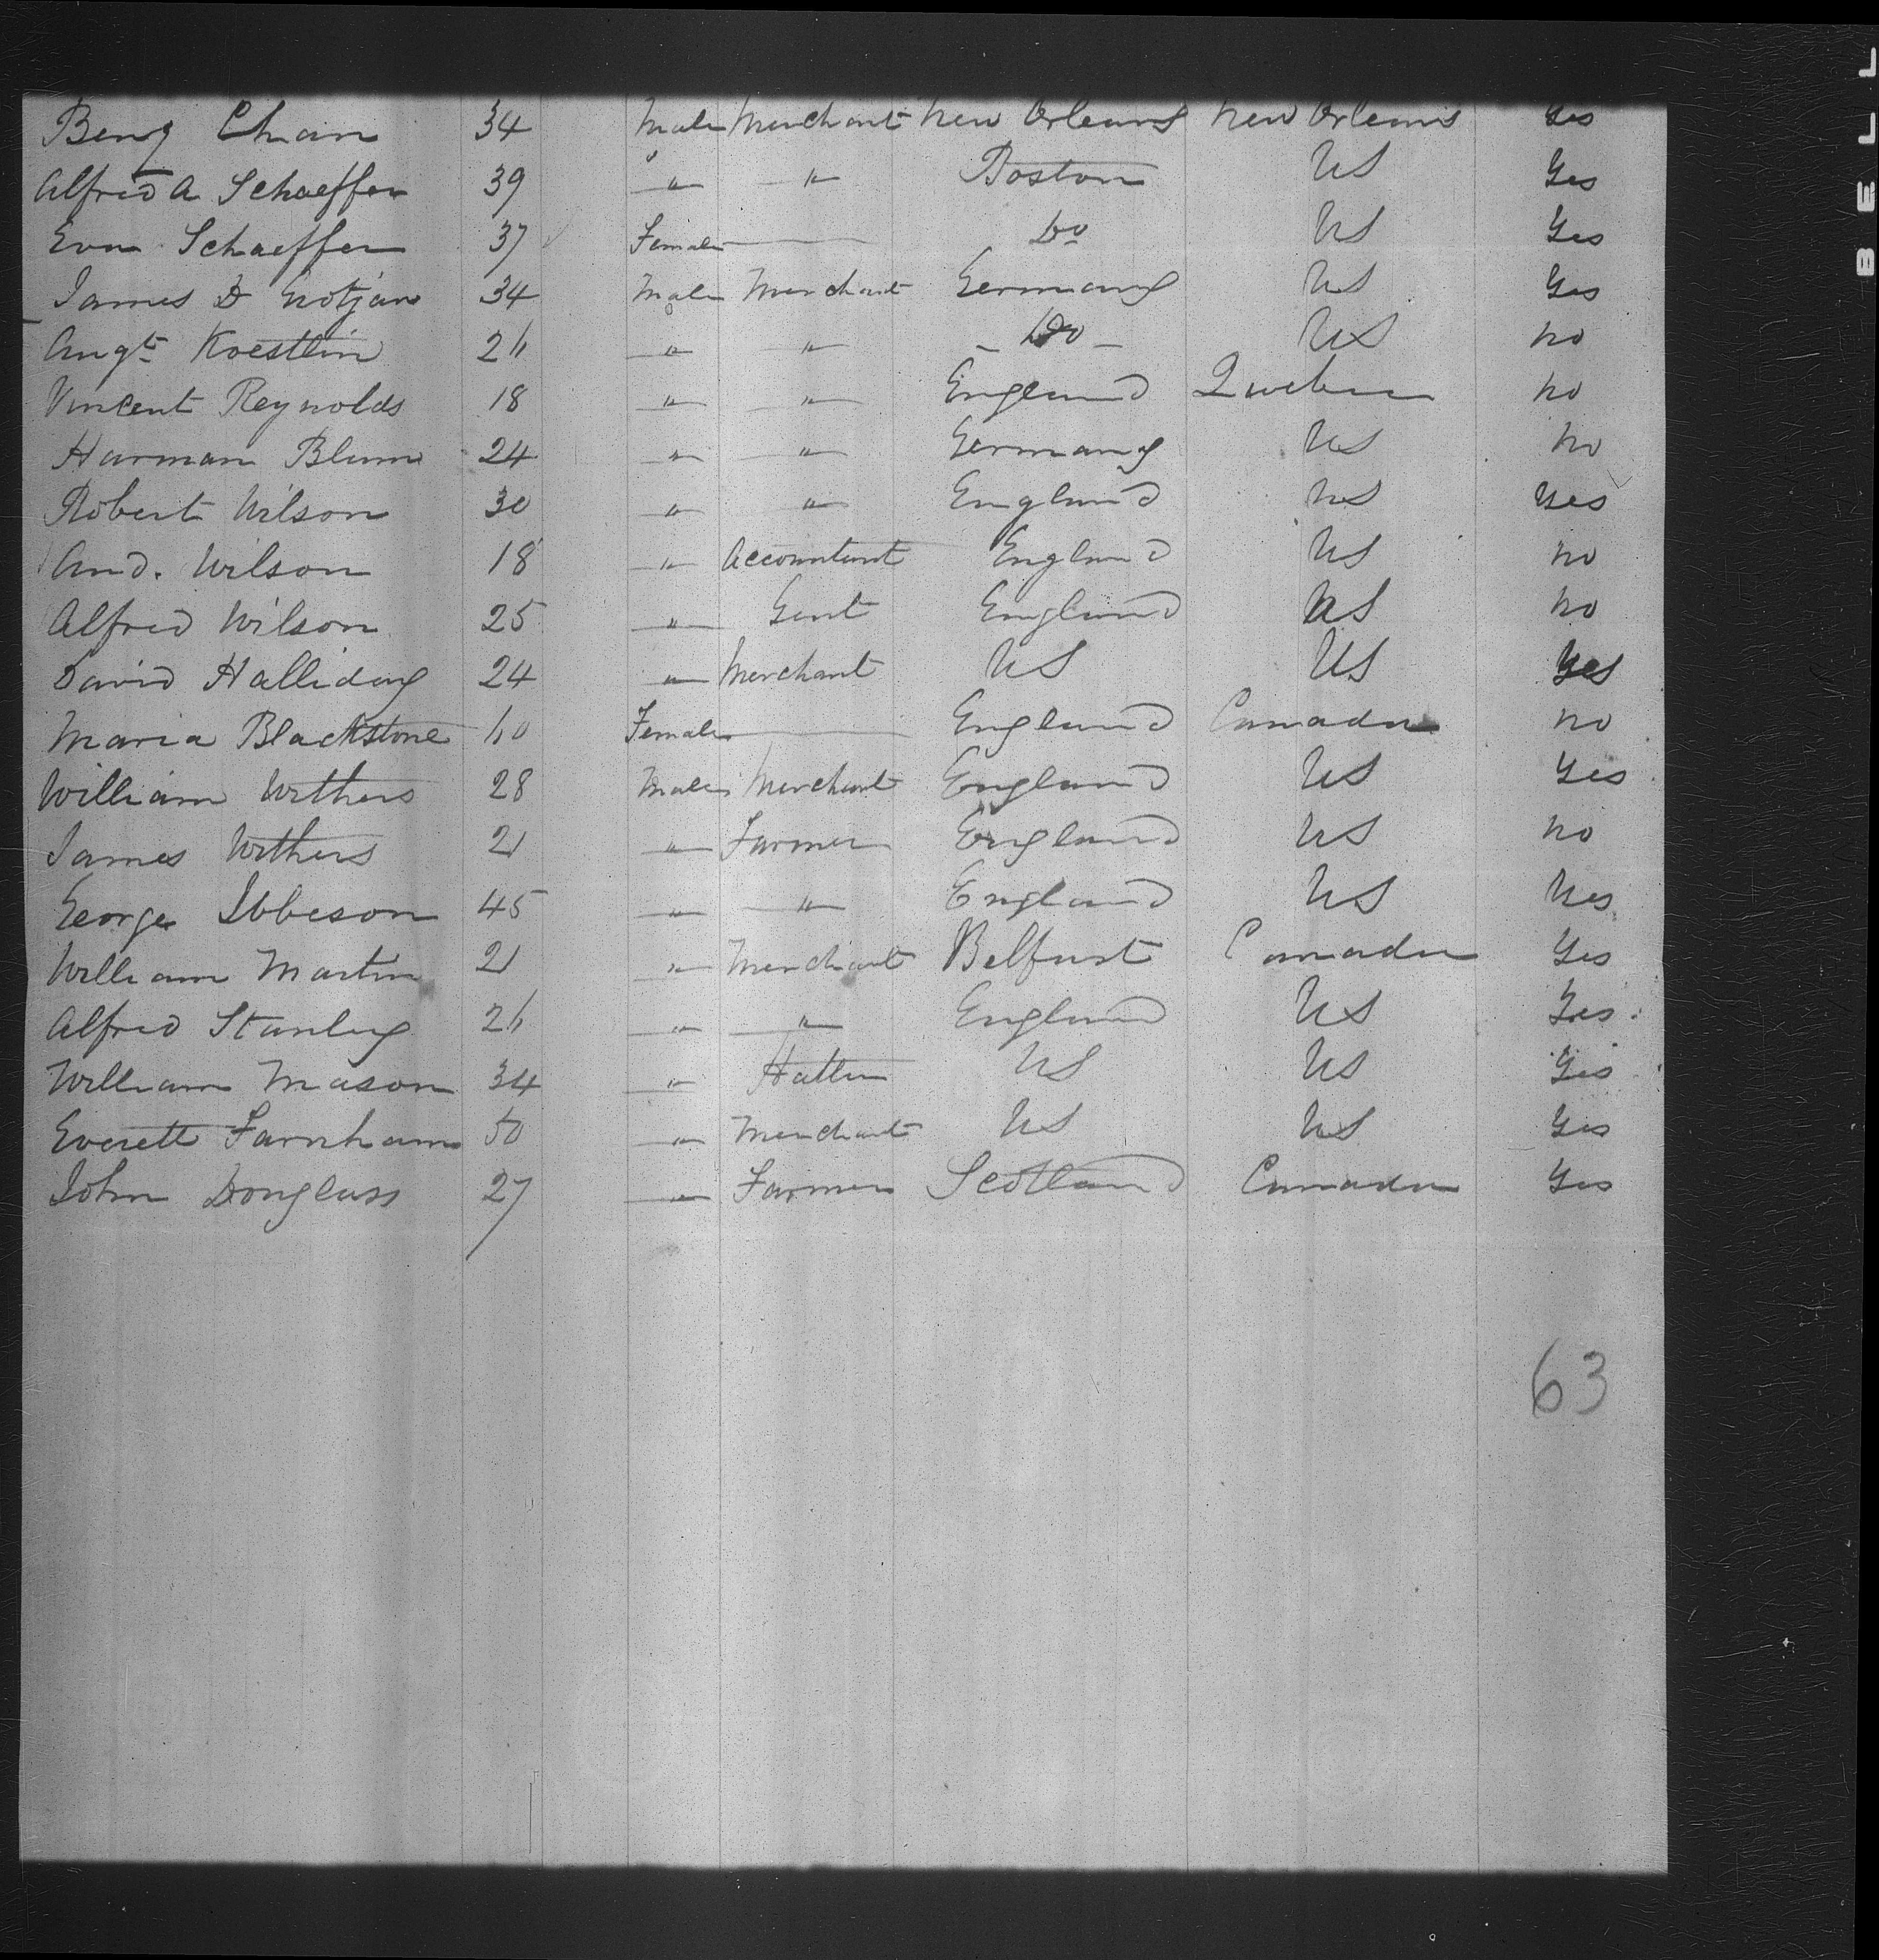 Benj Chan 34 Male Merchant New Orleans New Orleans Yes
Alfred A Schaeffer 39 " " Boston US Yes
Eva Schaeffer 37 Female Do US Yes
James D 34 Male Merchant Germany US Yes
Augt Koestlin 26 " " Do US no
Vincent Reynolds 18 " " England Quebec no
Harman Blum 24 " " Germany US no
Robert Wilson 30 " " England US Yes
And. Wilson 18 " Accountant England US no
Alfred Wilson 25 " Gent England US no
David Halliday 24 " Merchant US US Yes
Maria Blackstone 60 Female England Canada no
William Withers 28 Male Merchant England US Yes
James Withers 21 " Farmer England US no
George Ibbeson 45 " " England US Yes
William Martin 21 " Merchant Belfast Canada Yes
Alfred Stanley 26 " " England US Yes
William Mason 34 " Hatter US US Yes
Everett Farnham 50 " Merchant US US Yes
John Douglass 27 " Farmer Scotland Canada Yes
63
BELL